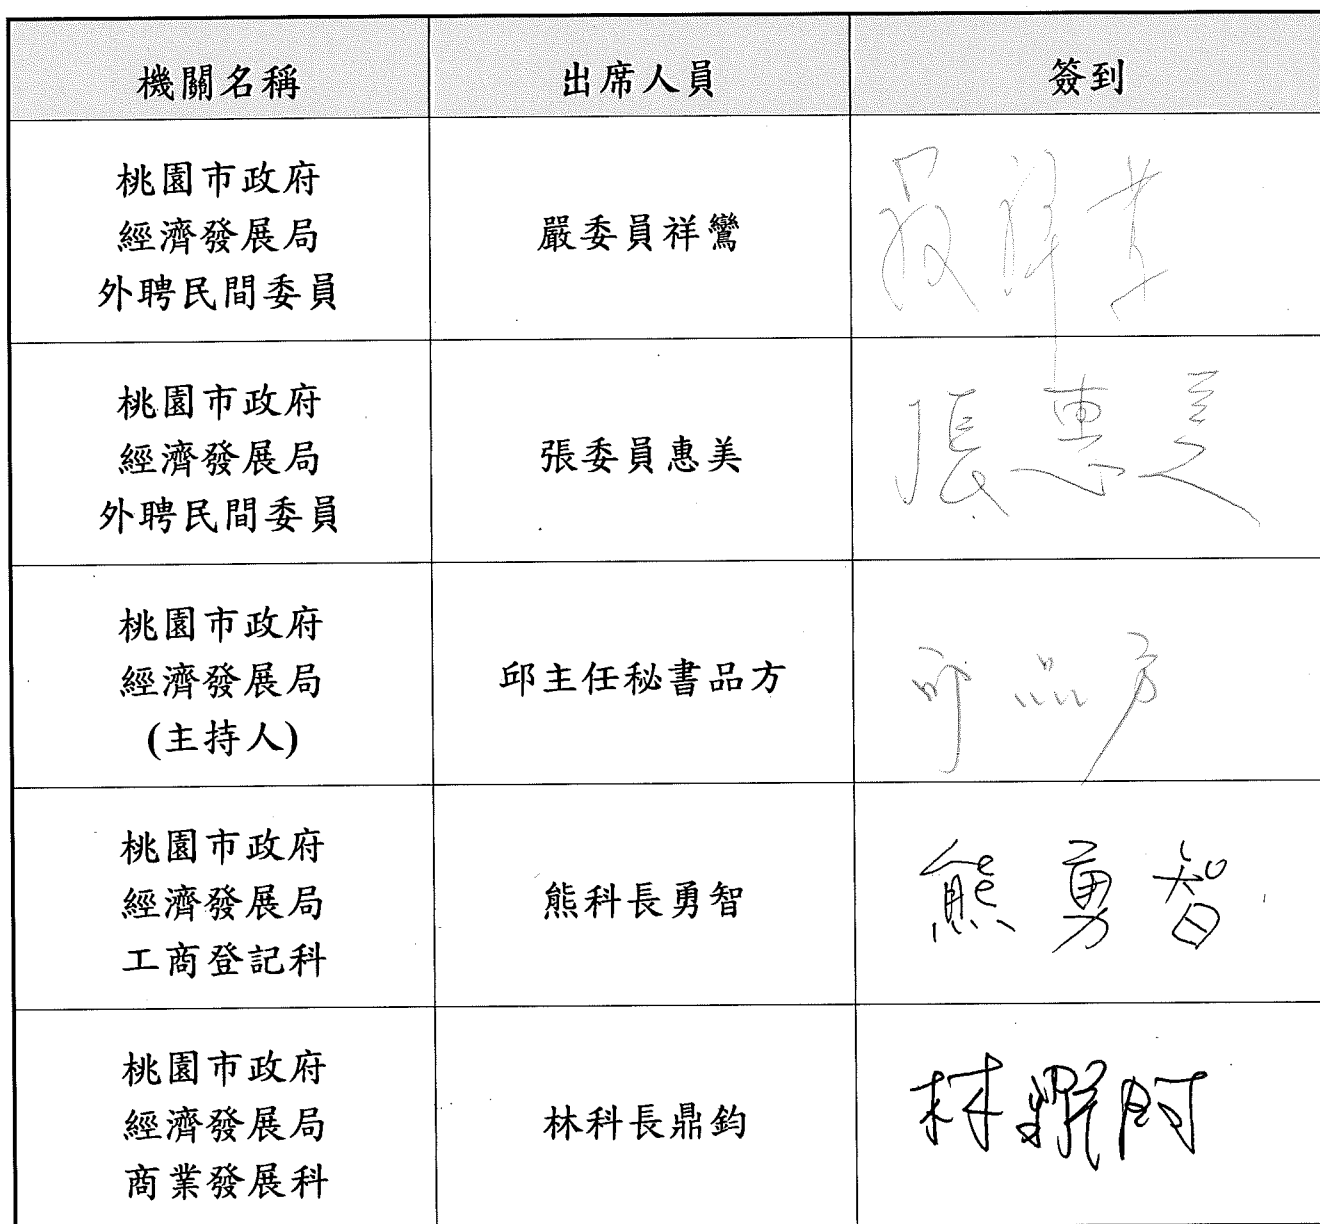 機關名稱 出席人員 簽到
桃園市政府
經濟發展局
外聘民間委員
嚴委員祥鸞
桃園市政府
經濟發展局
外聘民間委員
張委員惠美
張惠美
桃園市政府
經濟發展局
(主持人)
邱主任秘書品方
邱品方
桃園市政府
經濟發展局
工商登記科
熊科長勇智
熊勇智
桃園市政府
經濟發展局
商業發展科
林科長鼎鈞